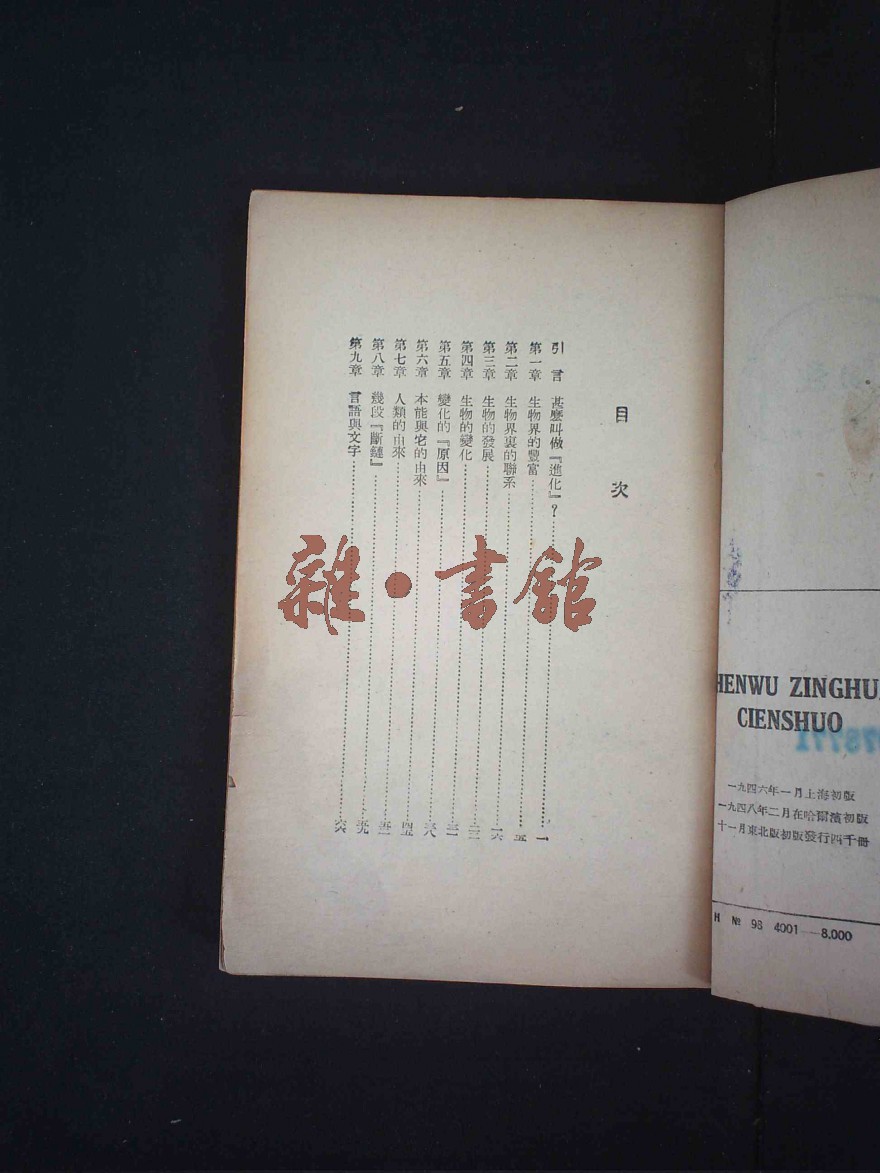 目次
引言 甚麽叫做『進化』？ 一
第一章 生物界的豐富 五
第二章 生物界裏的聯系 一六
第三章 生物的發展
第四章 生物的變化
第五章 變化的『原因』
第六章 本能與它的由來
第七章 人類的由來
第八章 幾段『斷鏈』
第九章 言語與文字
雜·書館
HENWU ZINGHU
CIENSHUO
一九四六年一月上海初版
一九四八年二月在哈爾濱初版
十一月東北版初版發行四千冊
H № 98 4001—8,000